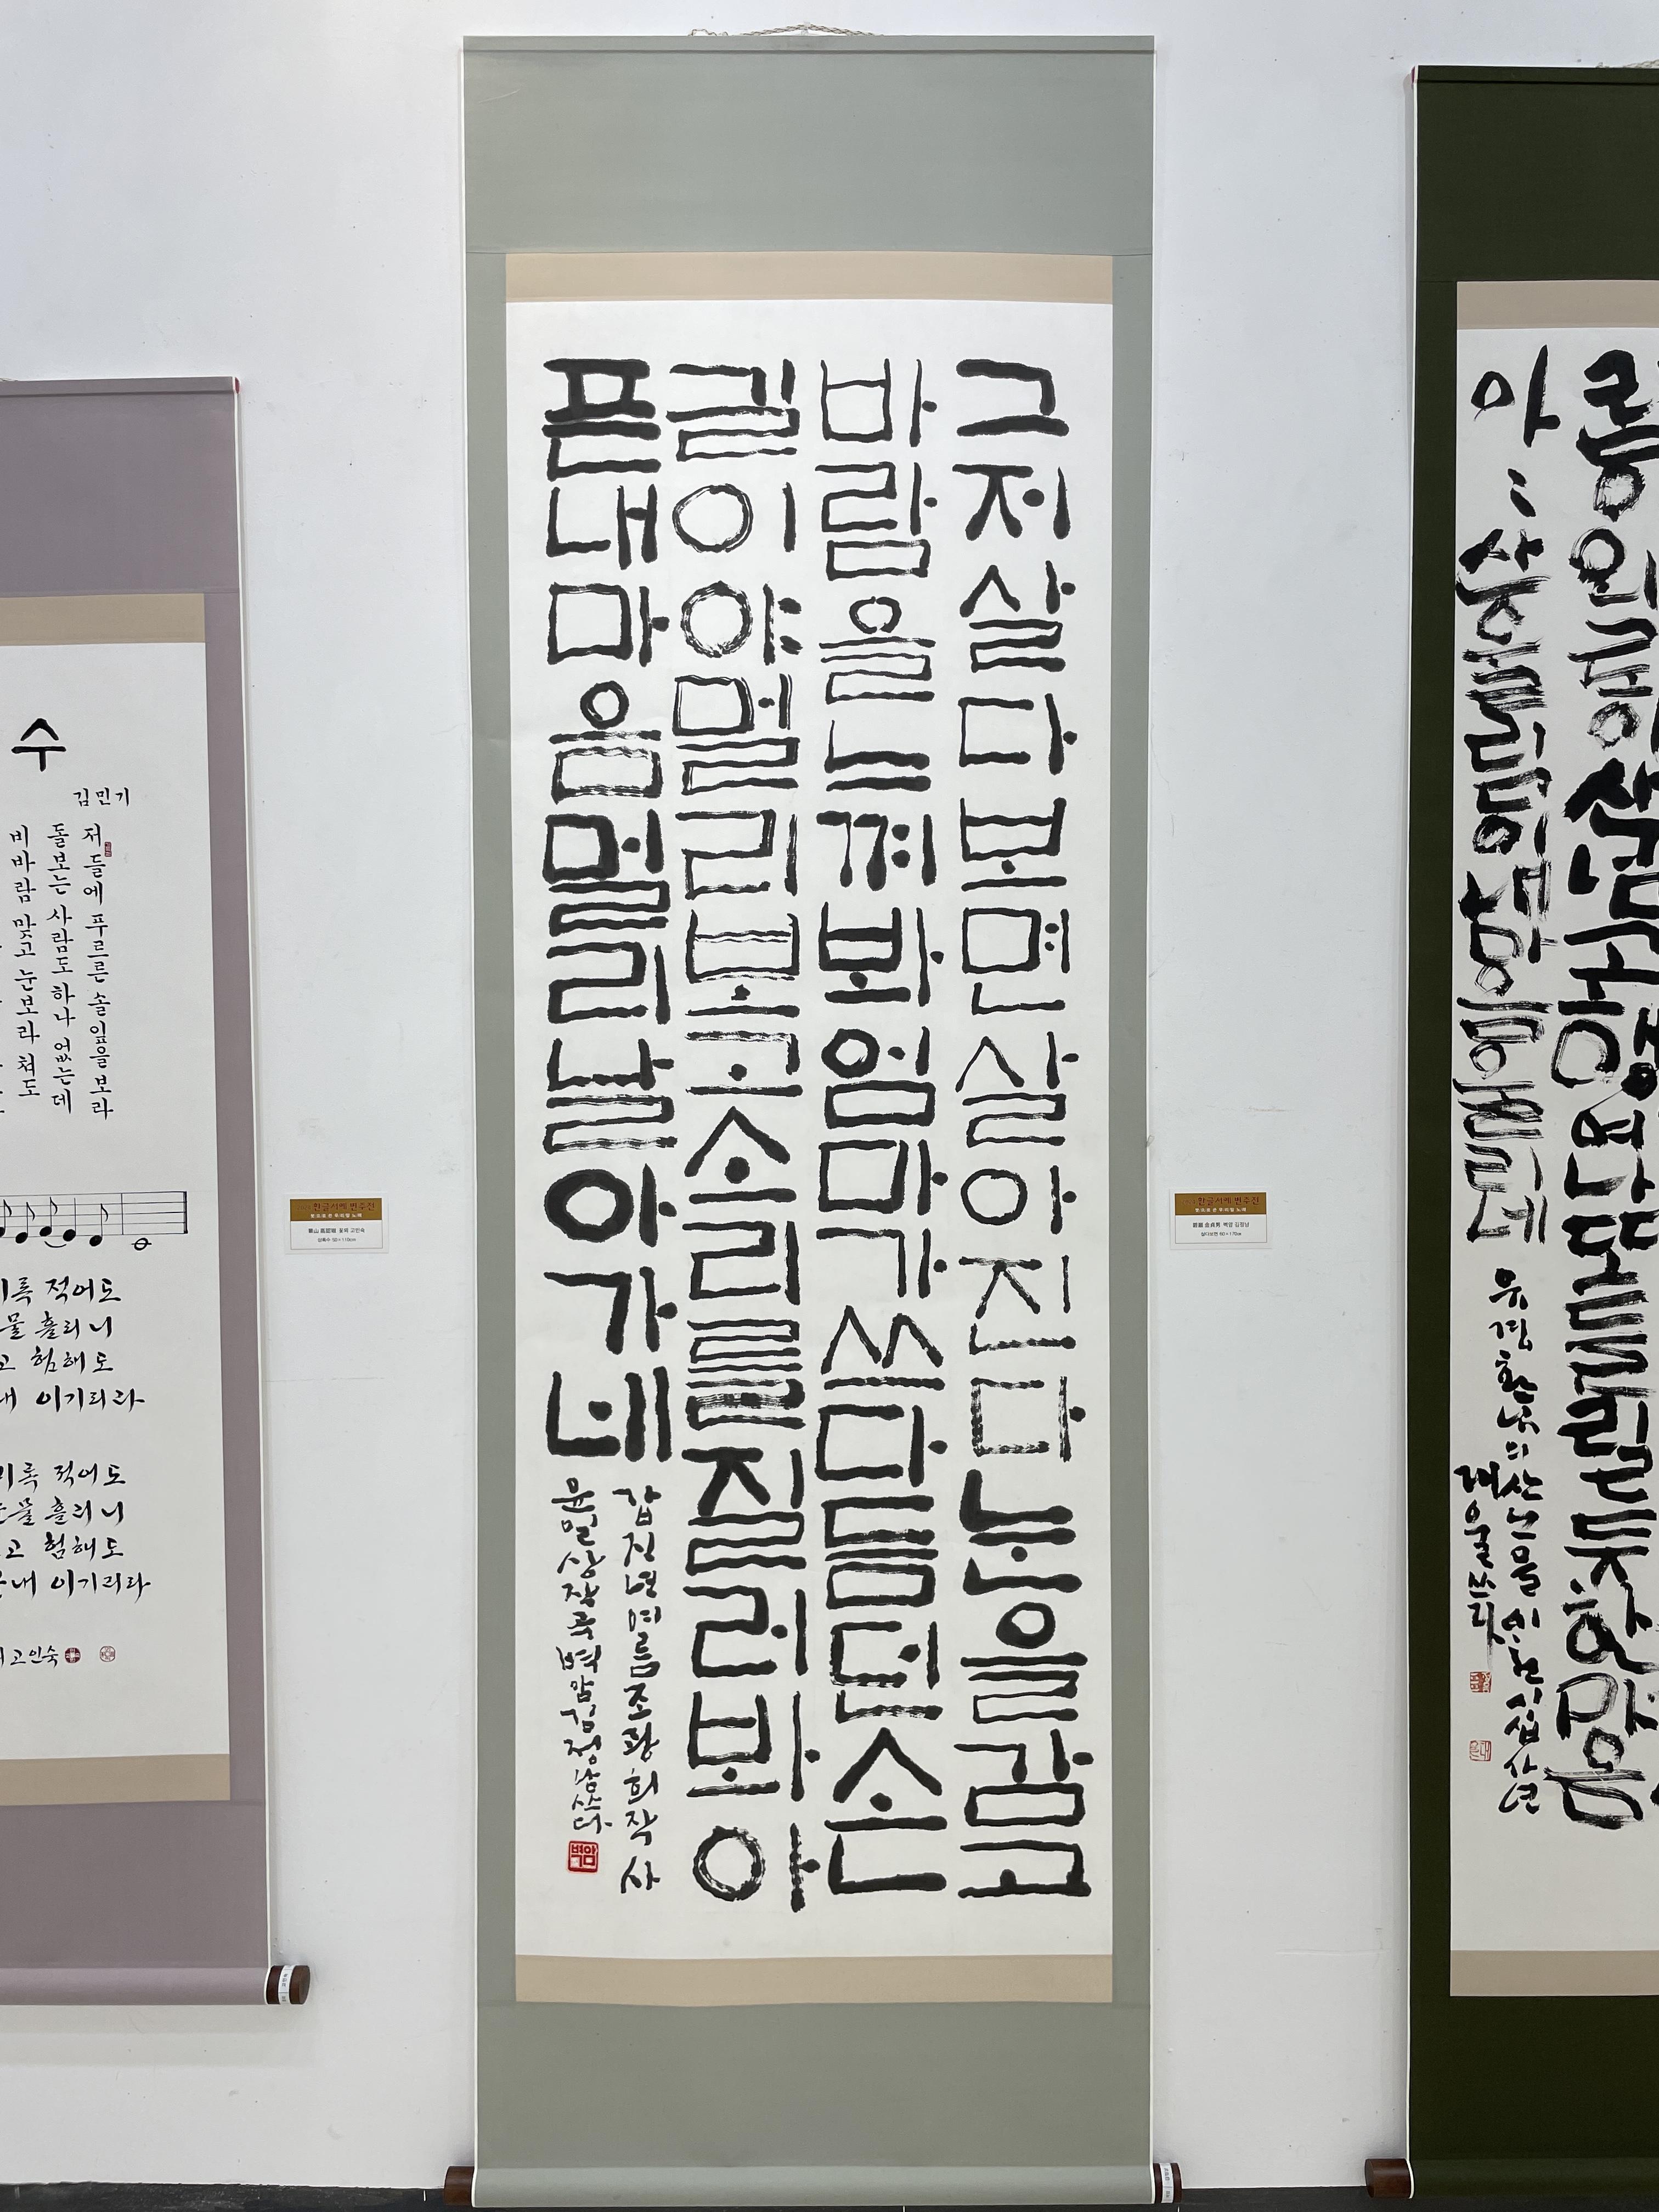 수
김민기
저 들에 푸르른 솔잎을 보라
돌보는 사람도 하나 없는데
비바람 맞고 눈보라 쳐도
적어도
흘리니
고 험해도
이기리라
적어도
흘리니
고 험해도
이기리라
고인숙
한글서예 변주전
상록수 50×110cm
그저살다보면살아진다눈을감고
바람을느껴봐엄마가쓰다듬던손
길이야멀리보고소리를질러봐아
픈내마음멀리날아가네
갑진년여름조광희작사
윤일상작곡벽암김정남쓰다
벽암
한글서예 변주전
벽암 김정남
살다보면 60×170cm
외로이산넘고행여나또들릴듯한마음
아〻산울림이내마음울리네
유경환님의산노을이천이십사년
쓰다